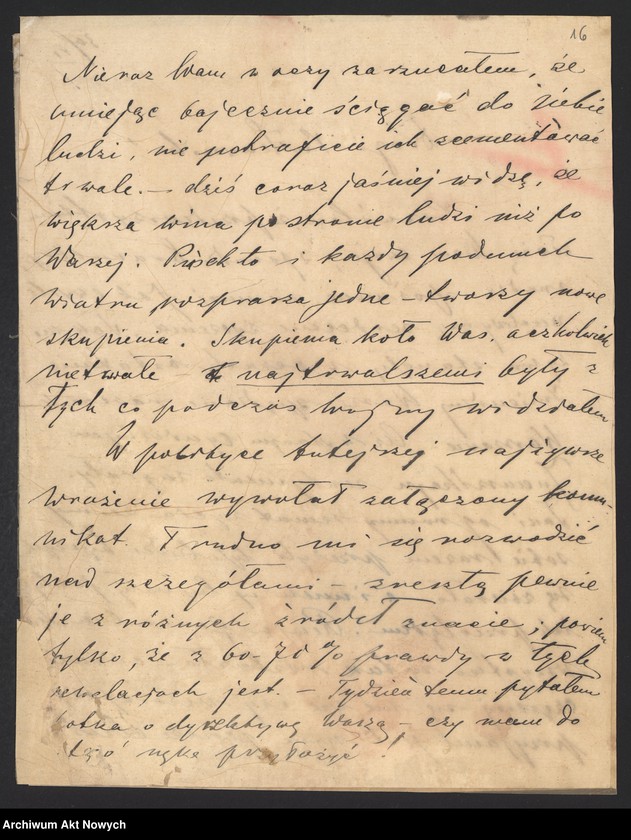 16
Nieraz Wam w oczy zarzucałem, że
umiejąc bajecznie ściągać do siebie
ludzi, nie potraficie ich scementować
trwale. – dziś coraz jaśniej widzę, że
większa wina po stronie ludzi niż po
Waszej. Piasek to i każdy podmuch
wiatru rozprasza jedne – tworzy nowe
skupienia. Skupienia koło Was, aczkolwiek
nietrwałe – najtrwalszemi były z
tych co podczas wojny widziałem
W polityce tutejszej najżywsze
wrażenie wywołał załączony komu-
nikat. Trudno mi się rozwodzić
nad szczegółami – zresztą pewnie
je z różnych źródeł znacie; powiem
tylko, że z 60-70% prawdy w tych
rewelacjach jest. – Tydzień temu pytałem
Kotka o dyrektywę Waszą – czy mam do
tego rękę przyłożyć!
Archiwum Akt Nowych